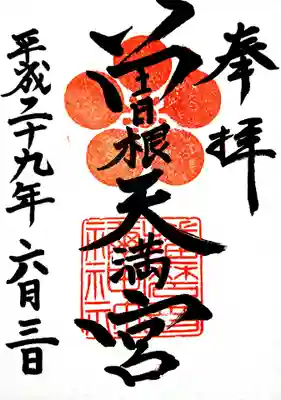 奉拝
曽根天満宮
平成二十九年 六月三日